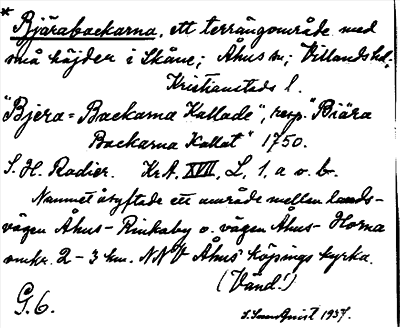 * Bjärabackarna, ett terrängområde med
små höjder i Skåne; Åhus sn; Villands hd,
Kristianstads l.
"Bjera=Backarna Kallade", resp. "Biära
Backarna Kallat" 1750.
S. H. Radier. Kr A. XVII, L, 1, a o. b.
Namnet åsyftade ett område mellan lands-
vägen Åhus–Rinkaby o. vägen Åhus–Horna
omkr. 2–3 km. NNV Åhus köpings kyrka.
(Vänd!)
G. 6.
1937.